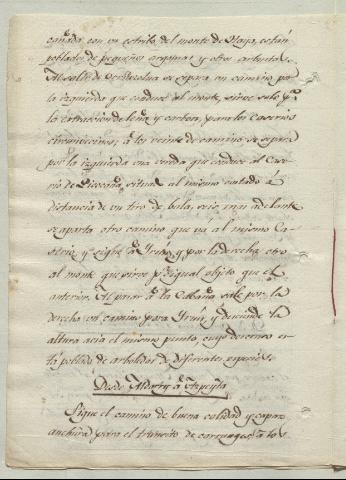 cañada con un estribo del monte de Olaya, están
poblados de pequeños argomas y otros arbustos.
Al salir de se separa un camino por
la izquierda que conduce al monte, sirve solo pª.
la extraccion de leña y carbon, para los caserios
circunvecinos, a los veinte de camino se separa
por la izquierda una vereda que conduce al Case-
rio de situado al mismo costado á
distancia de un tiro de bala, poco mas adelante
se aparta otro camino que vá al mismo Ca-
serio, y sigue á Yrun, y por la derecha otro
al monte que sirve pª. igual objeto que el
anterior. Al pasar á la Cabaña sale por la
derecha un camino para Yrun, y desciende la
altura acia el mismo punto, cuyo descenso es-
tá poblado de arboledas de diferentes especies.
Desde á Azpeytia
Sigue el camino de buena calidad y capaz
anchura para el transito de carruages, á los